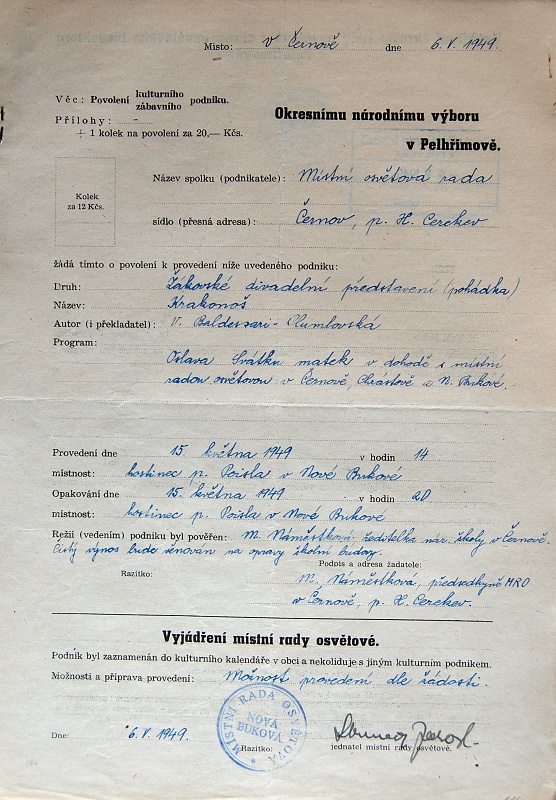 Místo: v Černově dne 6. V. 1949.
Věc: Povolení kulturního zábavního podniku.
Přílohy: -
+ 1 kolek na povolení za 20,— Kčs.
Okresnímu národnímu výboru
v Pelhřimově.
Kolek
za 12 Kčs.
Název spolku (podnikatele): Místní osvětová rada
sídlo (přesná adresa): Černov, p. H. Cerekev
žádá tímto o povolení k provedení níže uvedeného podniku:
Druh: Žákovské divadelní představení (pohádka)
Název: Krakonoš
Autor (i překladatel): V. Baldessari-Plumlovská
Program:
Oslava Svátku matek v dohodě s místní
radou osvětovou v Černově, Chrástově a N. Bukové.
Provedení dne 15. května 1949 v hodin 14
místnost: hostinec p. Poisla v Nové Bukové
Opakování dne 15. května 1949 v hodin 20
místnost: hostinec p. Poisla v Nové Bukové
Režií (vedením) podniku byl pověřen: M. Náměstková, ředitelka nár. školy v Černově.
Čistý výnos bude věnován na opravy školní budovy.
Podpis a adresa žadatele:
Razítko:
M. Náměstková, předsedkyně MRO
v Černově, p. H. Cerekev.
Vyjádření místní rady osvětové.
Podnik byl zaznamenán do kulturního kalendáře v obci a nekoliduje s jiným kulturním podnikem.
Možnosti a příprava provedení: Možnost provedení dle žádosti.
MÍSTNÍ RADA OSVĚTOVÁ
NOVÁ
BUKOVÁ
Dne: 6. V. 1949.
Razítko:
jednatel místní rady osvětové.